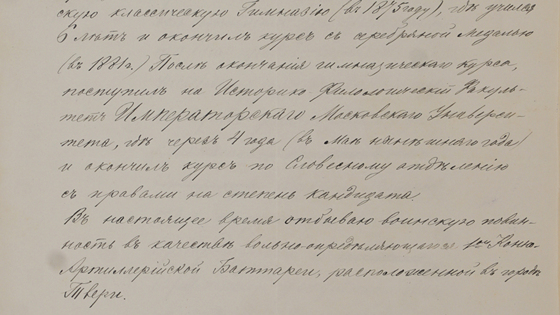 скую классическую Гимназію (въ 1875 году), гдѣ учился
6 лѣтъ и окончилъ курсъ съ серебряной медалью
(въ 1881 г.) Послѣ окончанія гимназическаго курса,
поступилъ на Историко-Филологическій Факуль-
тетъ Императорскаго Московскаго Универси-
тета, гдѣ черезъ 4 года (въ Маѣ нынѣшняго года)
и окончилъ курсъ по Словесному отдѣленію
съ правами на степень кандидата.
Въ настоящее время отбываю воинскую повин-
ность въ качествѣ вольноопредѣляющагося Конно-
Артиллерійской Баттареи, расположенной въ городѣ
Твери.